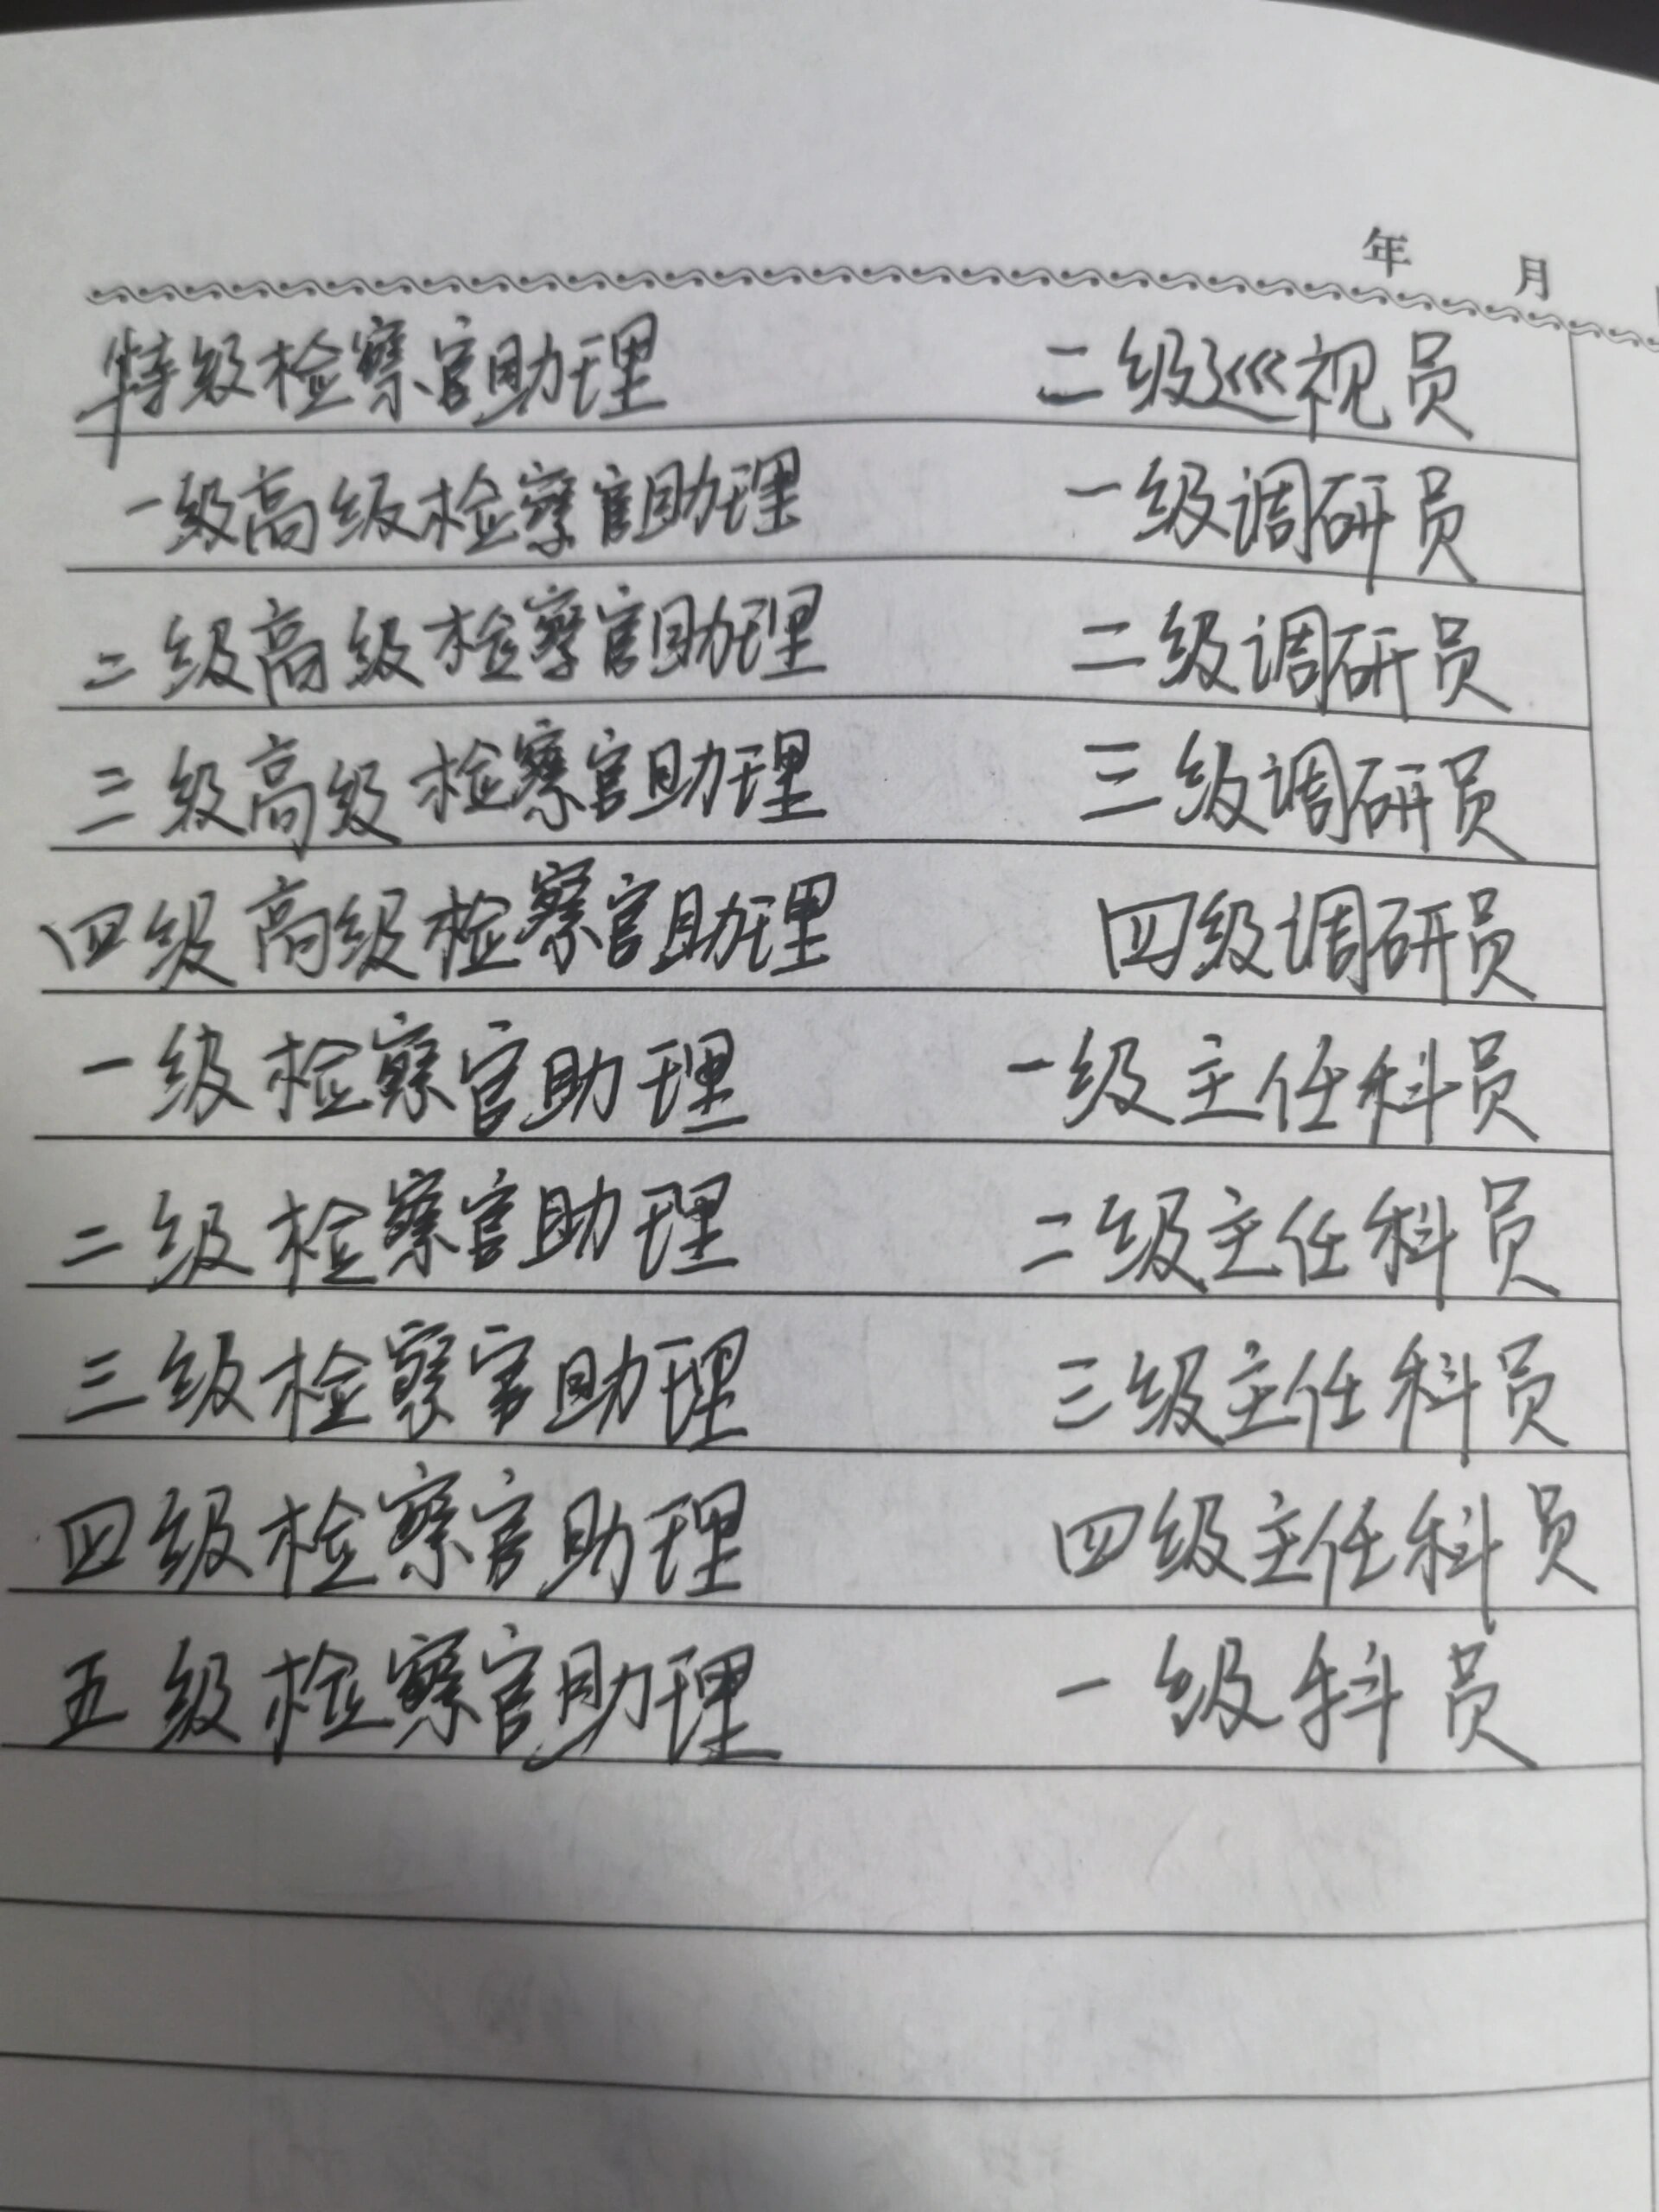 年 月
特级检察官助理 二级巡视员
一级高级检察官助理 一级调研员
二级高级检察官助理 二级调研员
三级高级检察官助理 三级调研员
四级高级检察官助理 四级调研员
一级检察官助理 一级主任科员
二级检察官助理 二级主任科员
三级检察官助理 三级主任科员
四级检察官助理 四级主任科员
五级检察官助理 一级科员